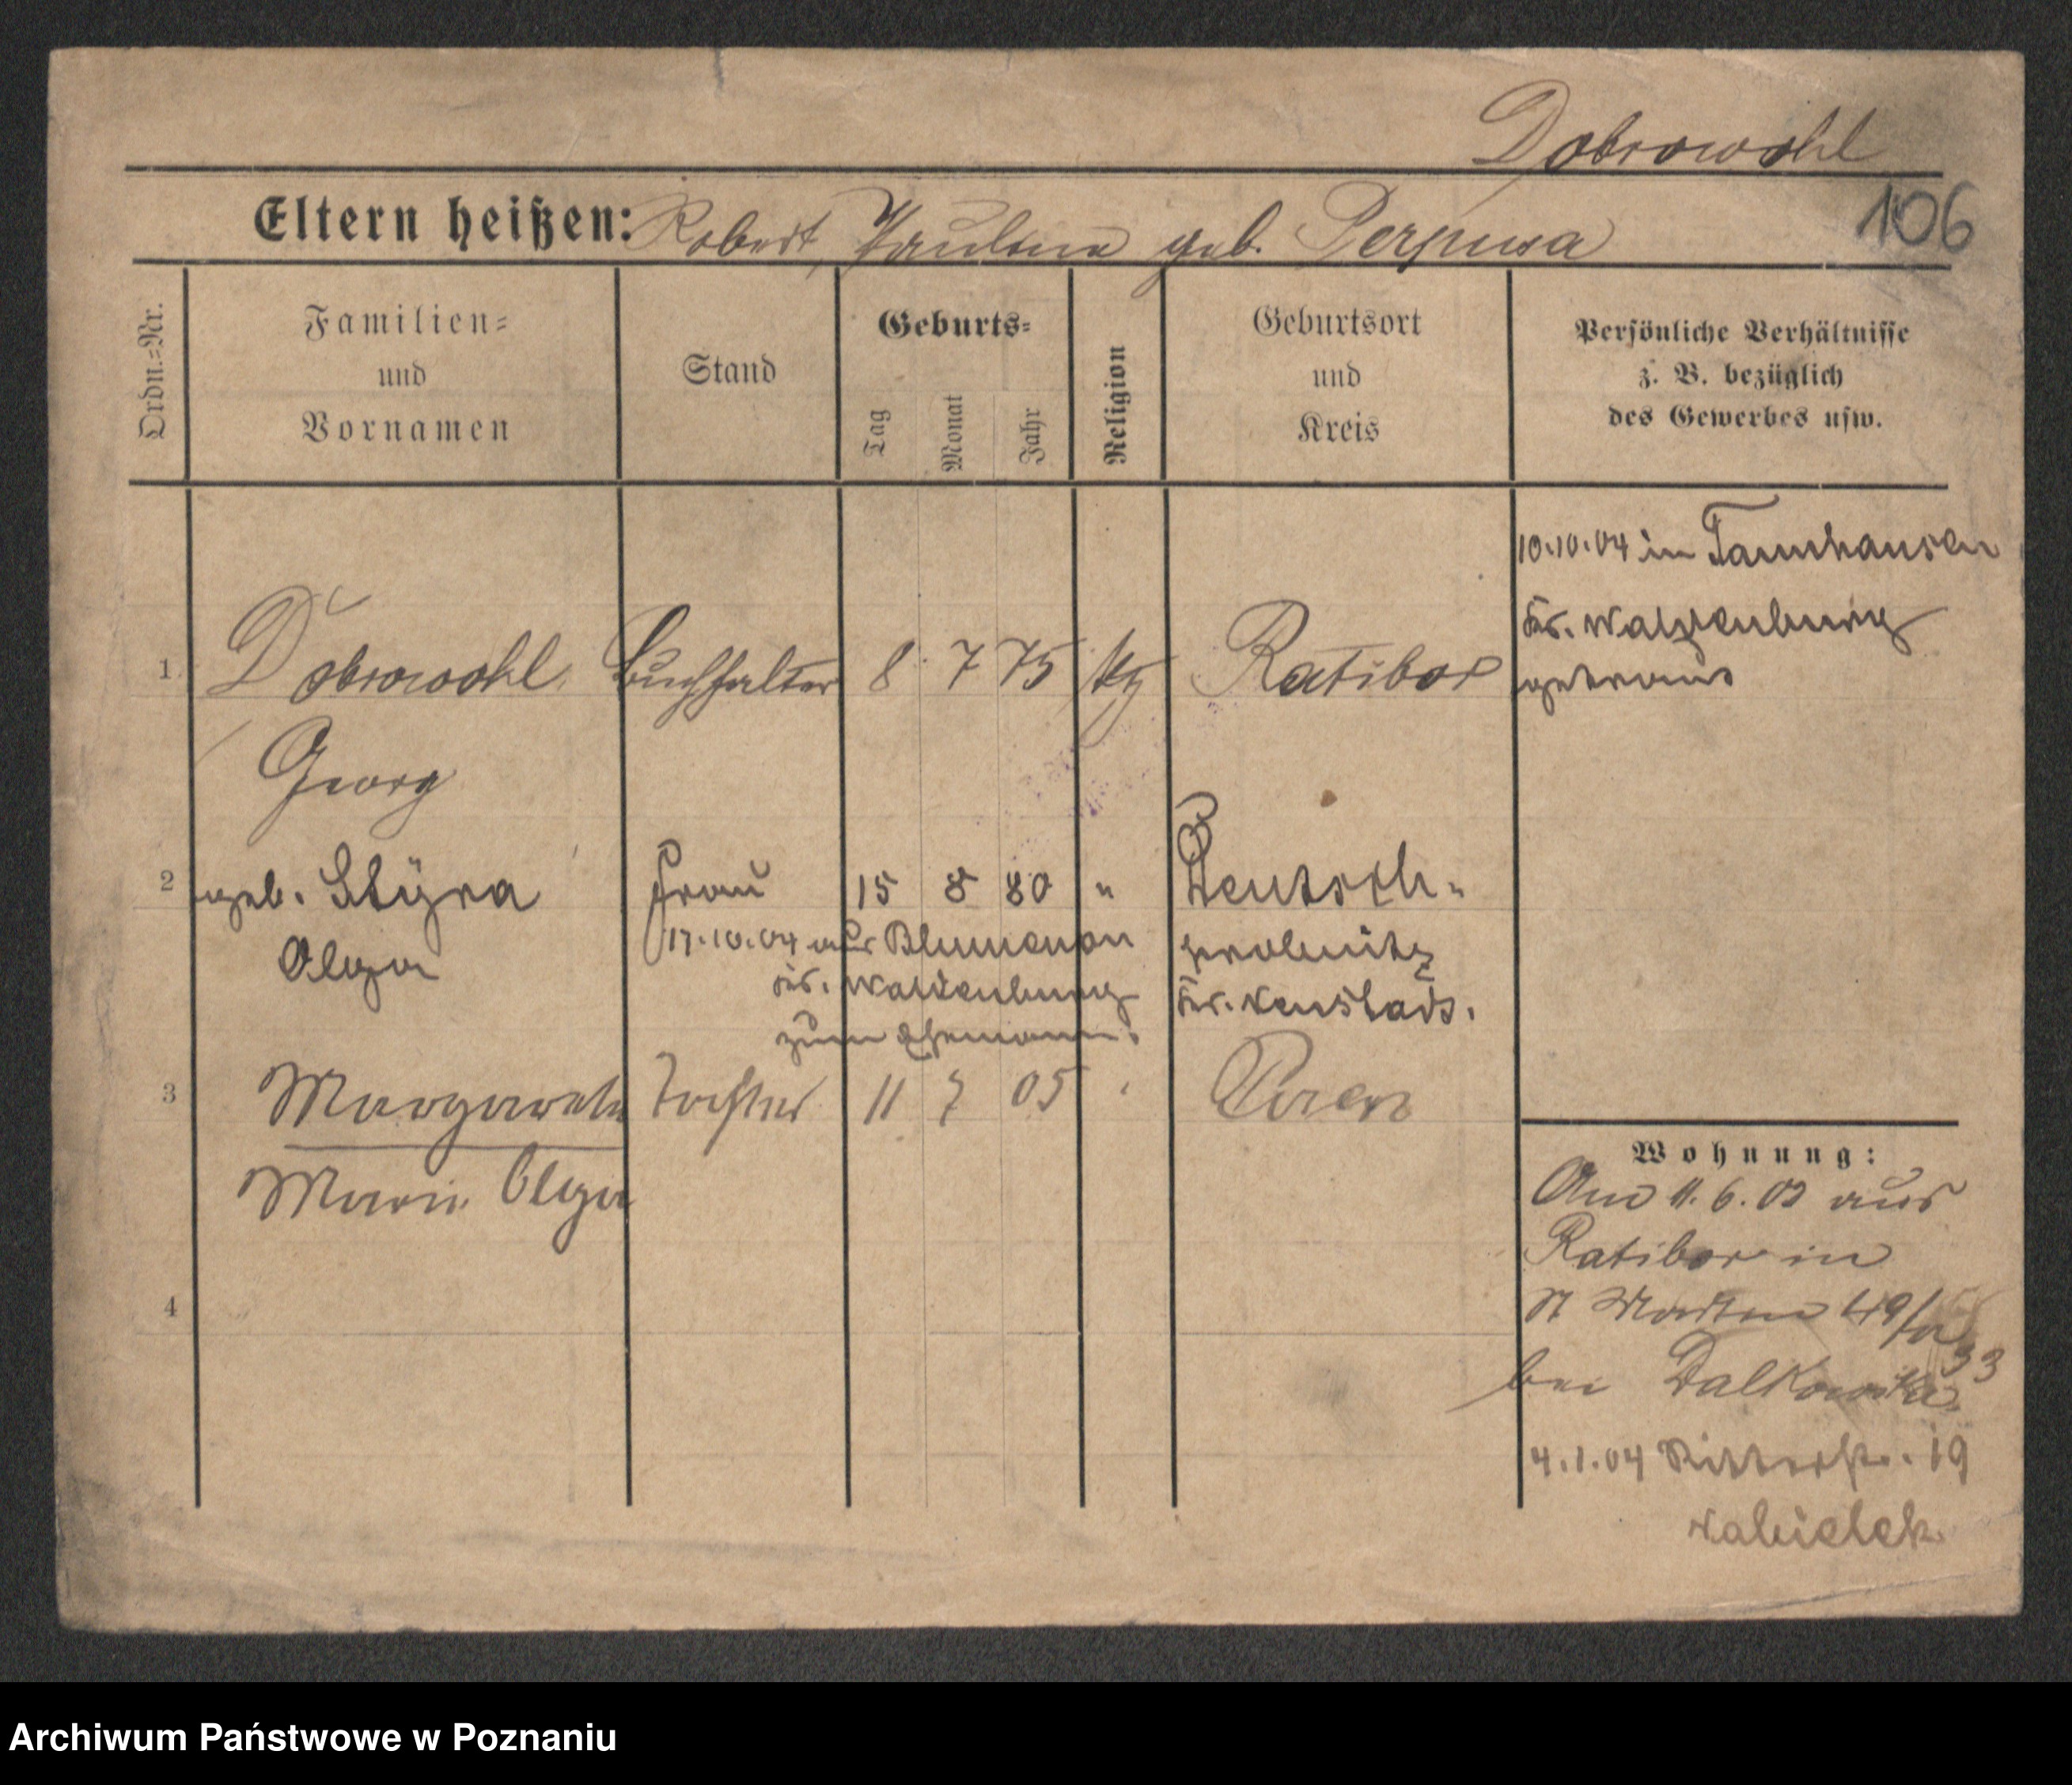 Dobrowohl
106
Eltern heißen: Robert, Pauline geb. Perpusa
Ordn.=Nr.
Familien=
und
Vornamen
Stand
Geburts=
Tag
Monat
Jahr
Religion
Geburtsort
und
Kreis
Persönliche Verhältnisse
z. B. bezüglich
des Gewerbes usw.
10.10.04 in Tannhausen
Kr. Waldenburg
getraut
1 Dobrowohl Buchhalter 8 7 75 Ratibor
Georg
2 geb. Stÿra Frau 15 8 80 " Deutsch-
Olga
17.10.04 aus Blumenau
Kr. Waldenburg
zum Ehemann.
probnitz
Kr. Neustadt.
3 Margarete Tochter 11 7 05 Posen
Marie Olga
4
Wohnung:
Am 11. 6. 02 aus
Ratibor in
St Martin 49/
33
bei Dalkowska
4.1.04 Ritterstr. 19